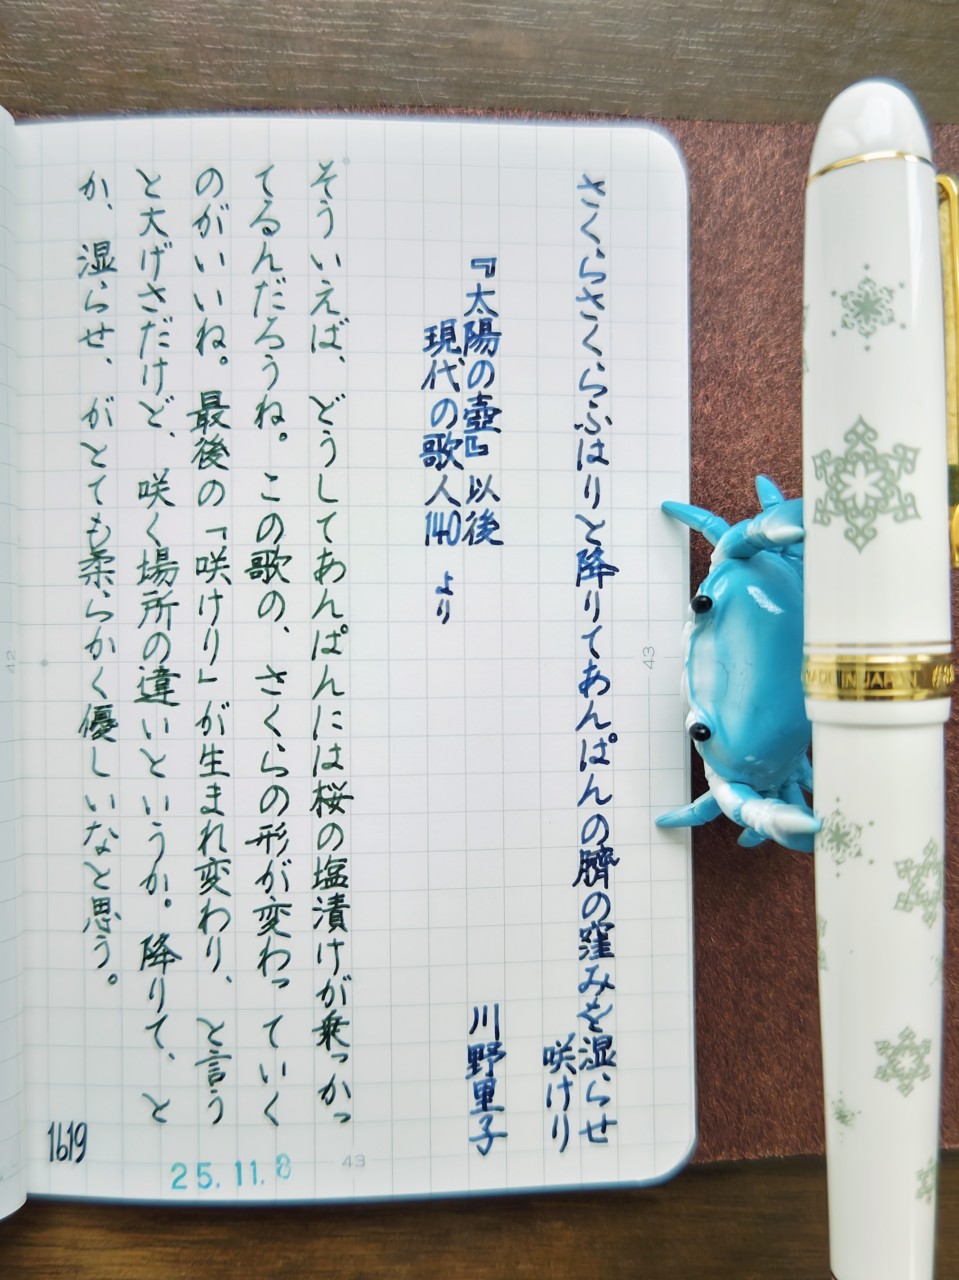 さくらさくらふはりと降りてあんぱんの臍の窪みを湿らせ
咲けり
『太陽の壺』以後
川野里子
現代の歌人140 より
そういえば、どうしてあんぱんには桜の塩漬けが乗っかっ
てるんだろうね。この歌の、さくらの形が変わっていく
のがいいね。最後の「咲けり」が生まれ変わり、と言う
と大げさだけど、咲く場所の違いというか。降りて、と
か、湿らせ、がとても柔らかく優しいなと思う。
1619
25.11.8
43
43
42
MADE IN JAPAN